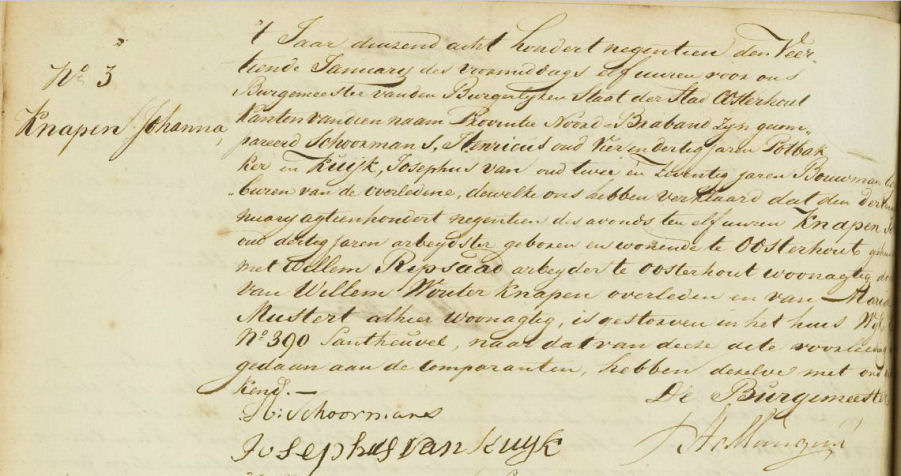 N.o 3
Knapen Johanna,
't Jaar duizend acht hondert negentien den Veer-
tiende January des voormiddags elf uuren voor ons
Burgemeester van den Burgerlyken Staat der Stad Oosterhout
Kanton van dien naam Provintie Noord-Braband zyn gecom-
pareerd Schoormans, Henricus oud vier en dertig jaren Potbak-
ker en Kuijk, Josephus van oud twee en zeventig jaren Bouwman
buren van de overledene, dewelke ons hebben verklaard dat den
nuary agtienhondert negentien des avonds ten elf uuren Knapen
oud dertig jaren arbeydster geboren en wonende te Oosterhout
met Willem Ripsaad arbeyder te Oosterhout woonagtig
van Willem Wouter Knapen overleden en van Maria
Mustert alhier woonagtig, is gestorven in het huis Wyk
N.o 390 Santheuvel, naar dat van deese acte voorleesing
gedaan aan de comparanten, hebben deselve met ons
kend. —
De Burgemeester
H: Schoormans
Josephus van Kuyk